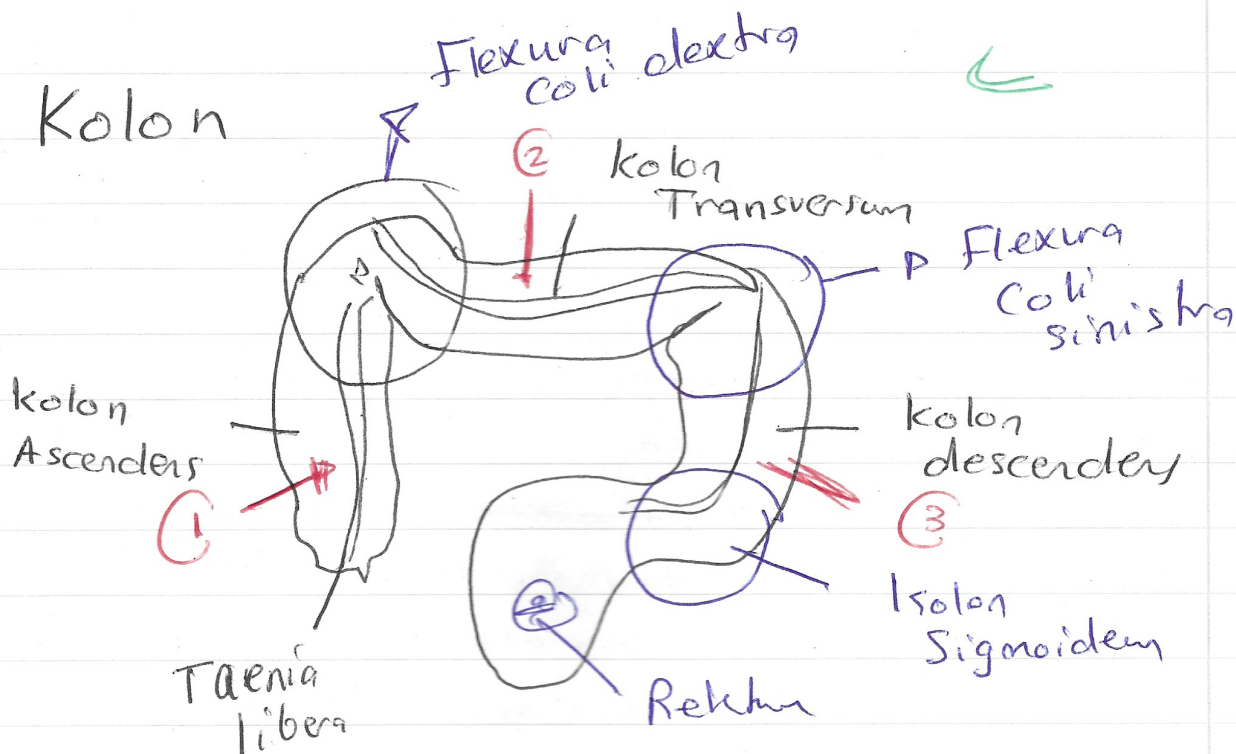 Flexura
coli dextra
Kolon
2
Kolon
Transversum
Flexura
coli
sinistra
kolon
Ascendens
1
Kolon
descendens
3
Kolon
Sigmoideum
Taenia
libera
Rektum